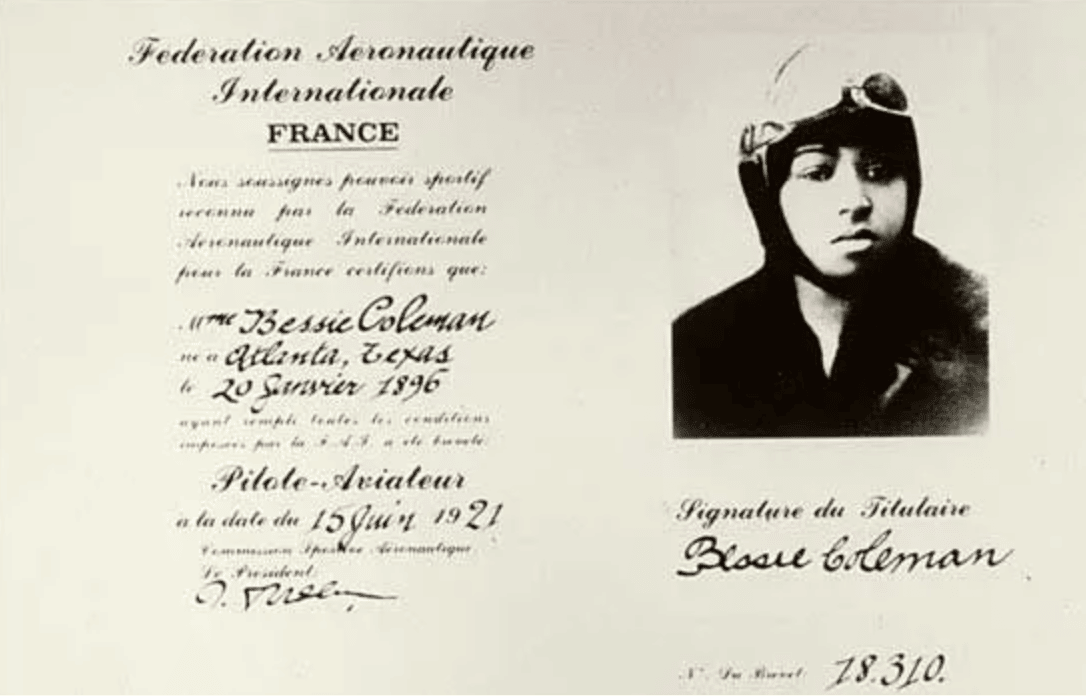 Federation Aeronautique
Internationale
FRANCE
Nous soussignes pouvoir sportif
reconnu par la Federation
Aeronautique Internationale
pour la France certifions que:
Mme Bessie Coleman
ne a Atlanta, Texas
le 20 Janvier 1896
ayant rempli toutes les conditions
imposees par la F.A.I. a ete brevete:
Pilote-Aviateur
a la date du 15 Juin 1921
Commission Sportive Aeronautique
Le President:
Signature du Titulaire
Bessie Coleman
N° Du Brevet 18.310.